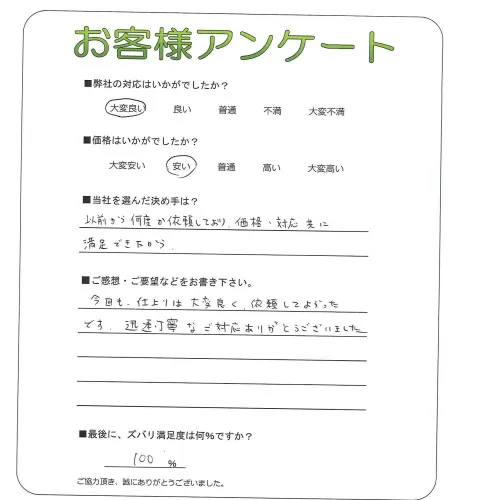 お客様アンケート
■弊社の対応はいかがでしたか？
大変良い 良い 普通 不満 大変不満
■価格はいかがでしたか？
大変安い 安い 普通 高い 大変高い
■当社を選んだ決め手は？
以前から何度か依頼しており、価格・対応共に
満足できたから。
■ご感想・ご要望などをお書き下さい。
今回も、仕上りは大変良く、依頼してよかった
です。迅速丁寧なご対応ありがとうございました
■最後に、ズバリ満足度は何%ですか？
100 %
ご協力頂き、誠にありがとうございました。